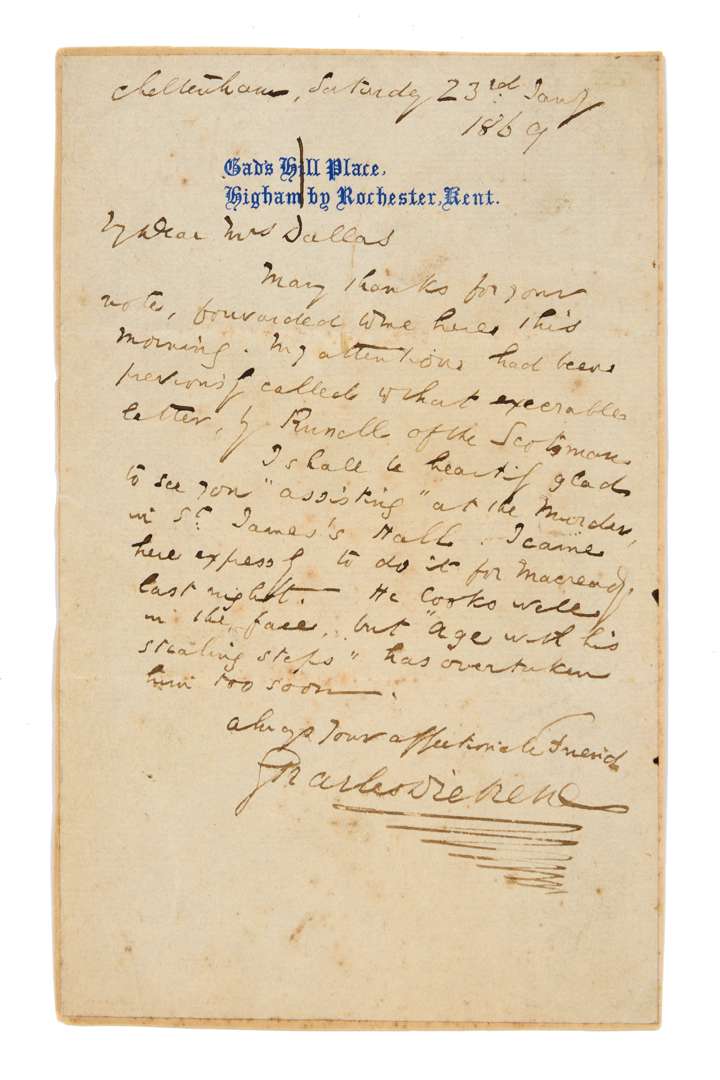 Cheltenham, Saturday 23rd Jany
1869
Gad's Hill Place,
Higham by Rochester, Kent.
My Dear Mrs Dallas
Many thanks for your
note, forwarded to me here this
morning. My attention had been
previously called to that execrable
letter, by Russell of the Scotsman.
I shall be heartily glad
to see you "assisting" at the Murder,
in St. James's Hall. I came
here expressly to do it for Macready,
last night. He looks well
in the face, but "age with his
stealing steps" has overtaken
him too soon.
always Your affectionate Friend
Charles Dickens